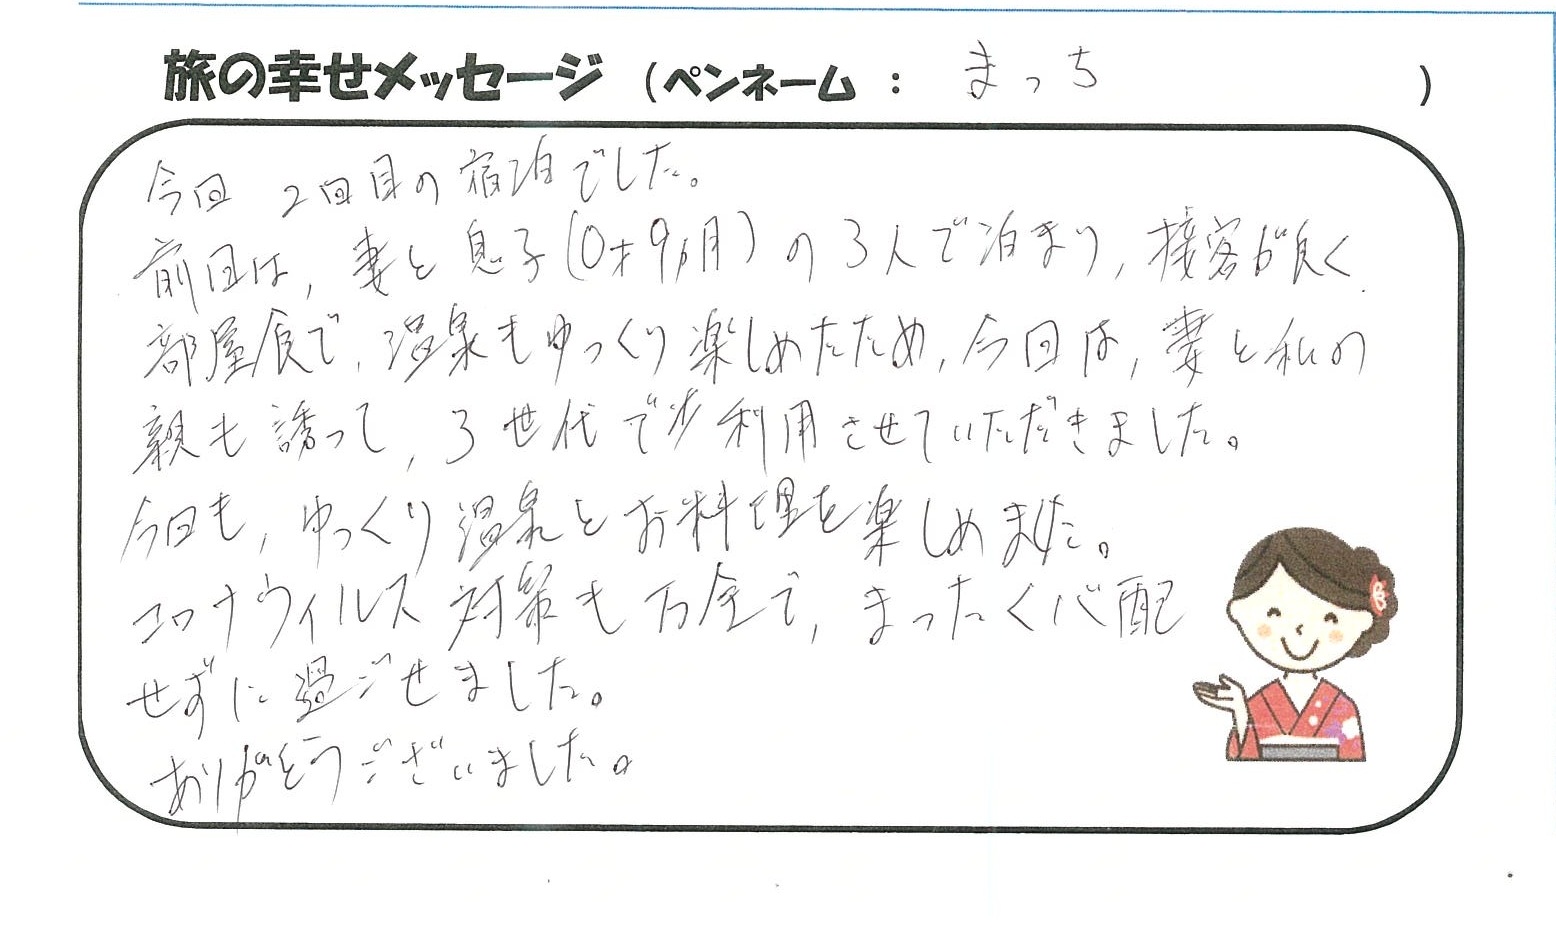 旅の幸せメッセージ (ペンネーム : まっち )
今回 2回目の宿泊でした。
前回は, 妻と息子(0才9ヵ月)の3人で泊まり, 接客が良く
部屋食で, 温泉もゆっくり楽しめたため, 今回は, 妻と私の
親も誘って, 3世代で利用させていただきました。
今回も, ゆっくり温泉とお料理を楽しめました。
コロナウィルス対策も万全で, まったく心配
せずに過ごせました。
ありがとうございました。